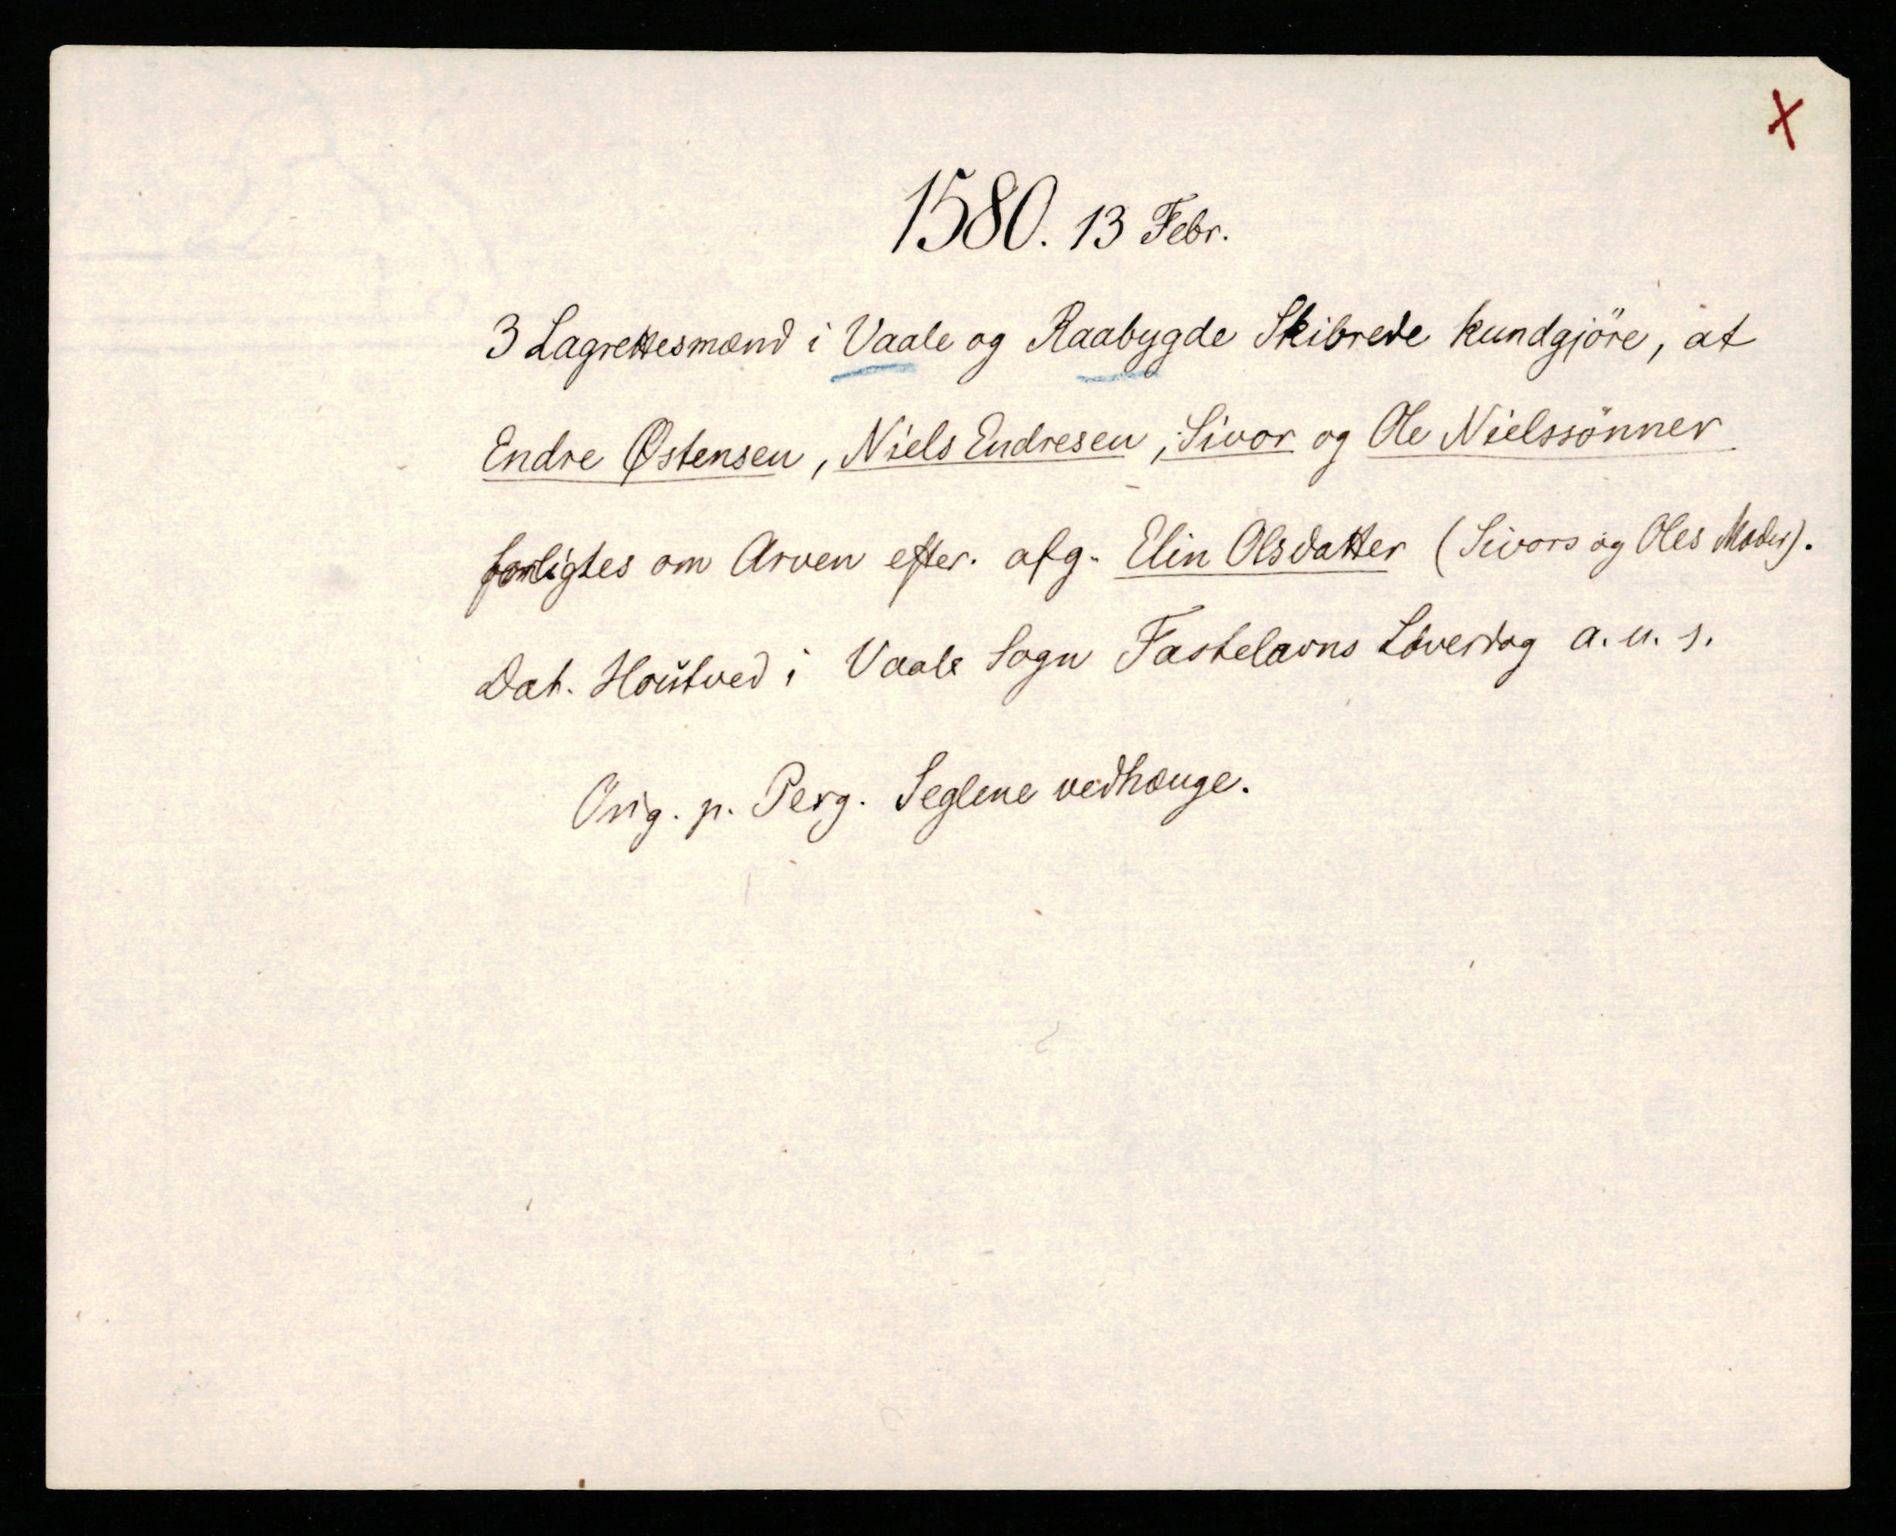 X
1580. 13 Febr.
3 Lagrettesmænd i Vaale og Raabygde Skibrede kundgjöre, at
Endre Østensen, Niels Endresen, Sivor og Ole Nielssönner
forligtes om Arven efter. afg. Elin Olsdatter (Sivors og Oles Moder).
Dat. Houtved i Vaale Sogn Fastelavns Löverdag a. u. s.
Orig. p. Perg. Seglene vedhænge.